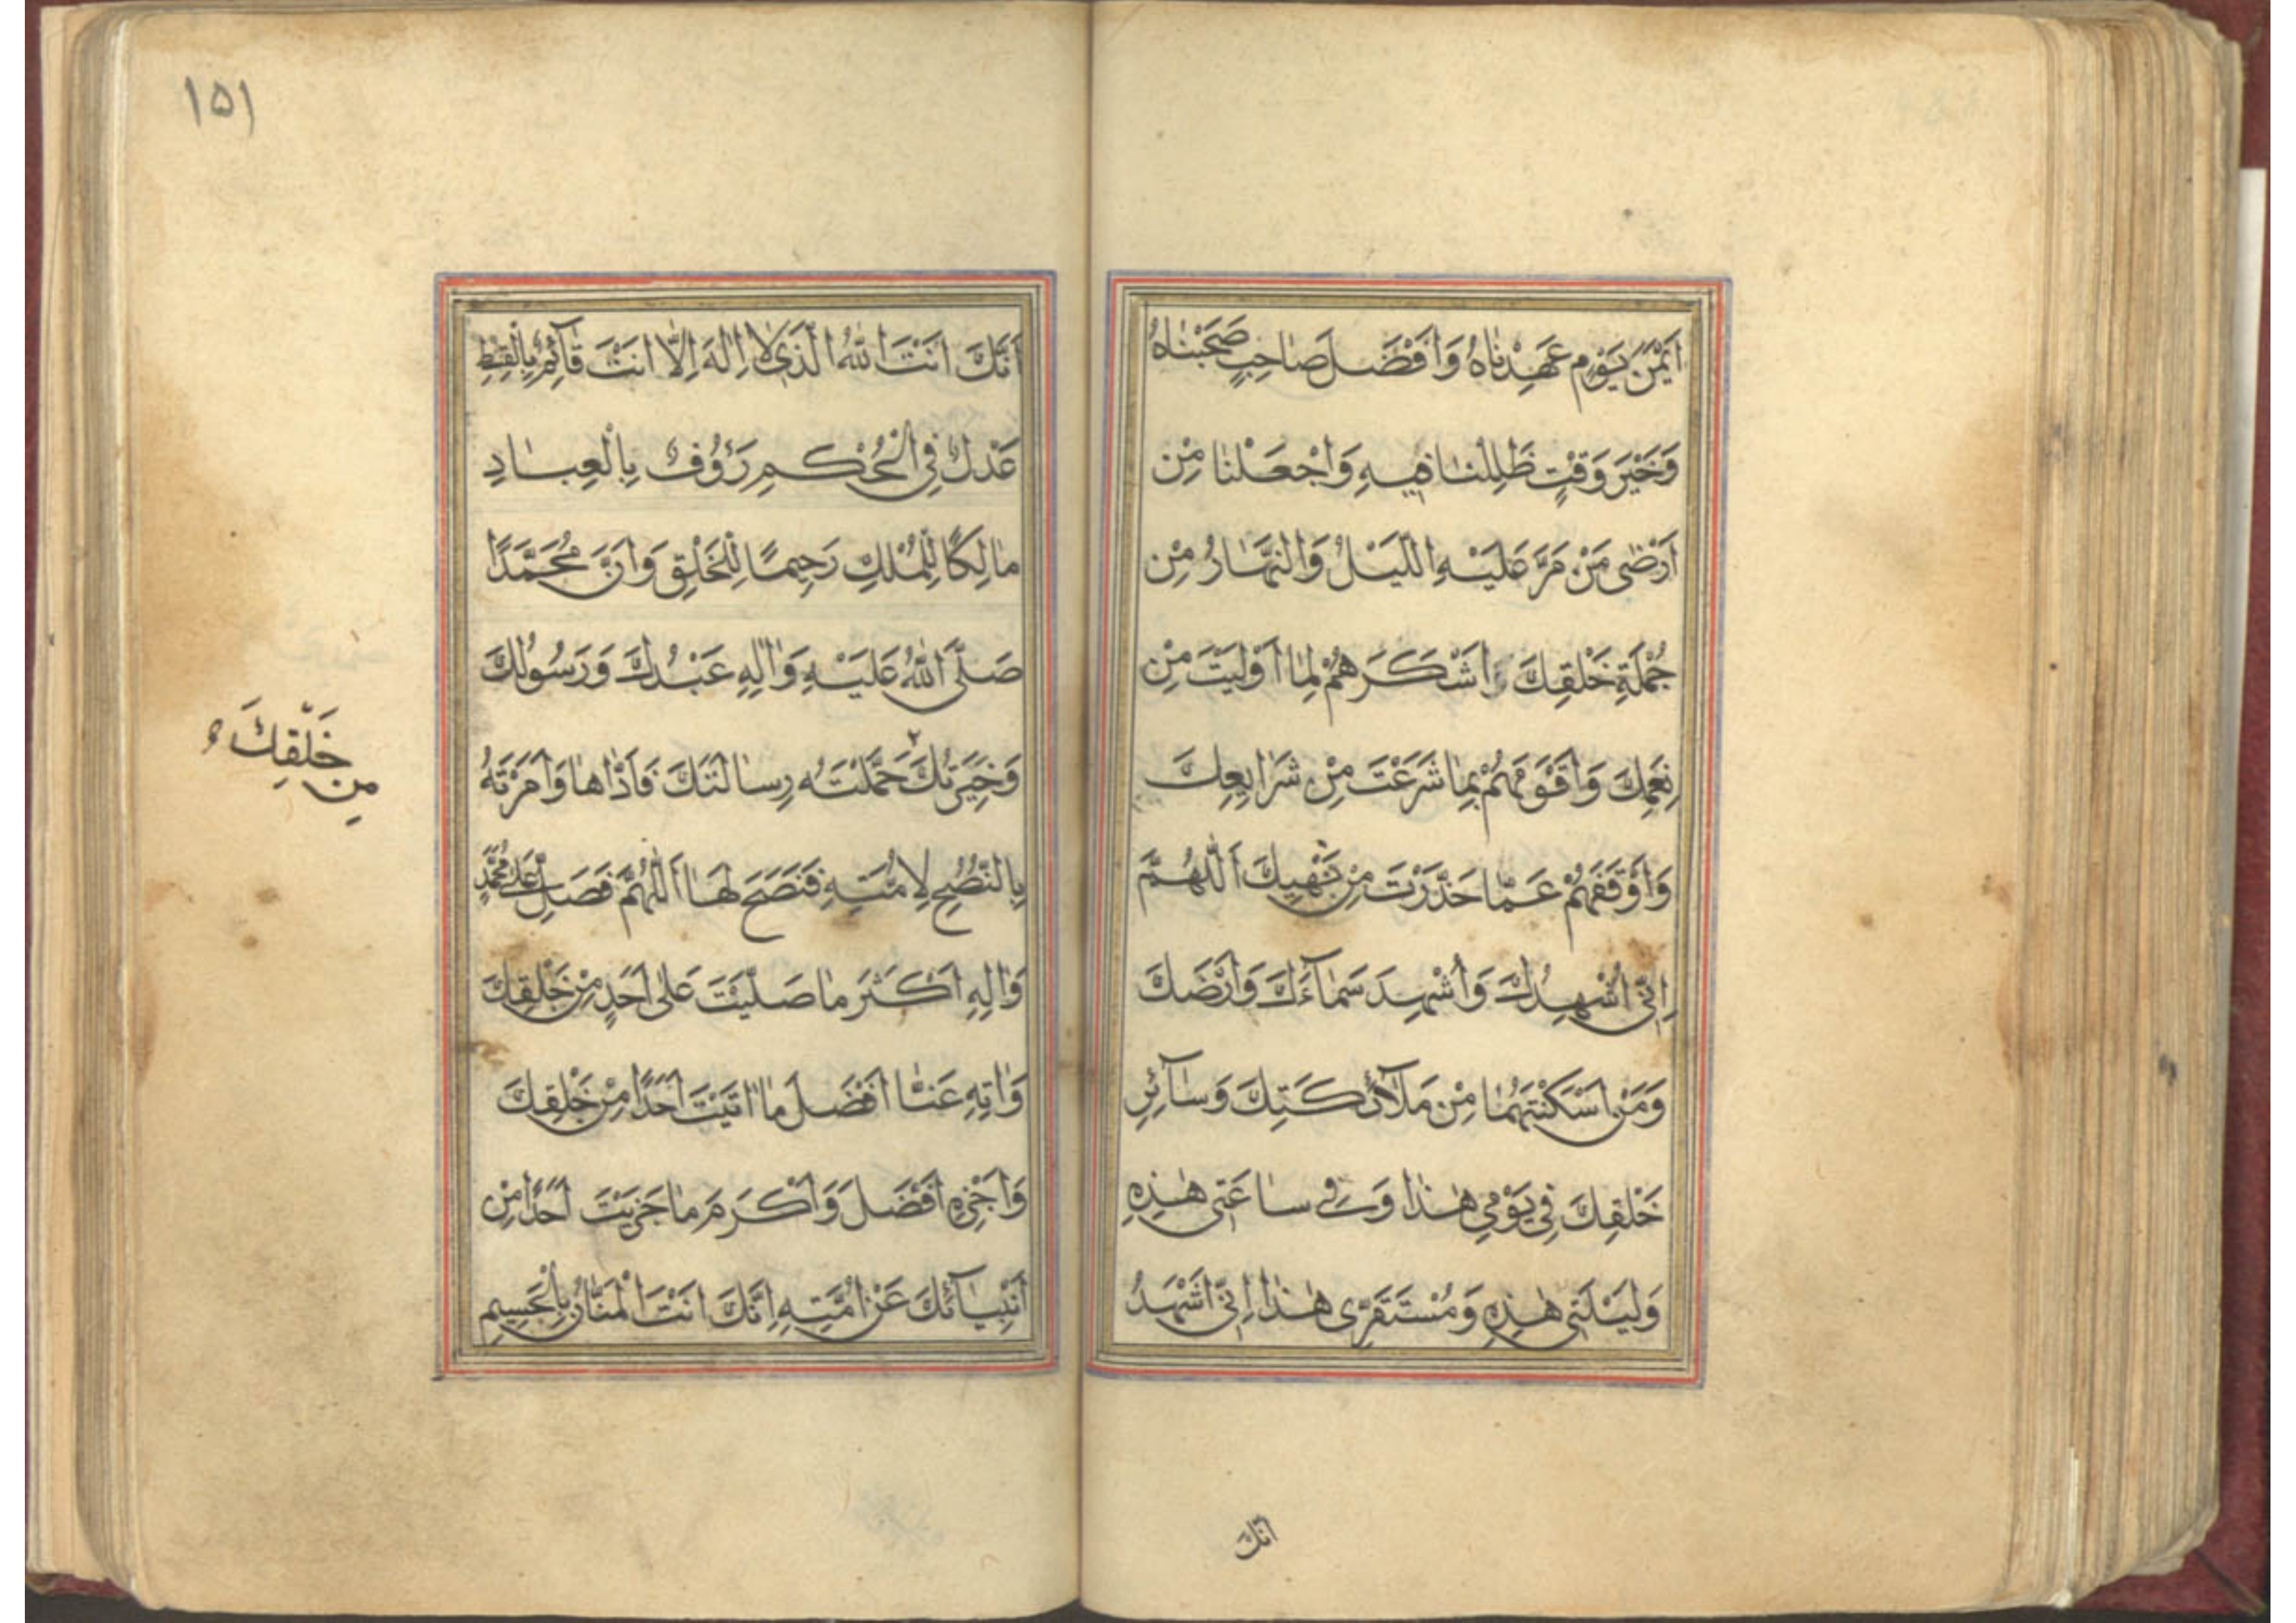 اَيْمَنَ يَوْمٍ عَهِدْنٰاهُ وَاَفْضَلَ صٰاحِبٍ صَحِبْنٰاهُ
وَخَيْرَ وَقْتٍ ظَلِلْنٰا فيهِ وَاجْعَلْنٰا مِنْ
اَرْضٰى مَنْ مَرَّ عَلَيْهِ اللَّيْلُ وَالنَّهٰارُ مِنْ
جُمْلَةِ خَلْقِكَ وَاَشْكَرَهُمْ لِمٰا اَوْلَيْتَ مِنْ
نِعَمِكَ وَاَقْوَمَهُمْ بِمٰا شَرَعْتَ مِنْ شَرَايِعِكَ
وَاَوْقَفَهُمْ عَمّٰا حَذَّرْتَ مِنْ نَهْيِكَ اَللّٰهُمَّ
اِنّى اُشْهِدُكَ وَاُشْهِدَ سَمٰآءَكَ وَاَرْضَكَ
وَمَنْ اَسْكَنْتَهُمٰا مِنْ مَلآئِكَتِكَ وَسٰآئِرِ
خَلْقِكَ فِي يَوْمِي هٰذٰا وَفي سٰاعَتى هٰذِهِ
وَلَيْلَتى هٰذِهِ وَمُسْتَقَرِّى هٰذٰا اِنّى اَشْهَدُ
اَنَّكَ
١٥١
اَنَّكَ اَنْتَ اللّٰهُ الَّذي لاٰ اِلٰهَ اِلّٰا اَنْتَ قٰآئِمٌ بِالْقِسْطِ
عَدْلٌ فِي الْحُكْمِ رَؤُوفٌ بِالْعِبٰادِ
مٰالِكًا لِلْمُلْكِ رَحِيمًا لِلْخَلْقِ وَاَنَّ مُحَمَّدًا
صَلَّى اللّٰهُ عَلَيْهِ وَاٰلِهِ عَبْدُكَ وَرَسُولُكَ
وَخِيَرَتُكَ ٢ حَمَّلْتَهُ رِسٰالَتَكَ فَاَدّٰاهٰا وَاَمَرْتَهُ
بِالنُّصْحِ لِاُمَّتِهِ فَنَصَحَ لَهٰا اَللّٰهُمَّ فَصَلِّ عَلٰى مُحَمَّدٍ
وَاٰلِهِ اَكْثَرَ مٰا صَلَّيْتَ عَلٰى اَحَدٍ مِنْ خَلْقِكَ
وَاٰتِهِ عَنّٰا اَفْضَلَ مٰا اٰتَيْتَ اَحَدًا مِنْ خَلْقِكَ
وَاَجْزِهِ اَفْضَلَ وَاَكْرَمَ مٰا جَزَيْتَ اَحَدًا مِنْ
اَنْبِيٰآئِكَ عَنْ اُمَّتِهِ اِنَّكَ اَنْتَ الْمَنّٰانُ بِالْجَسِيمِ
مِن خَلْقِكَ